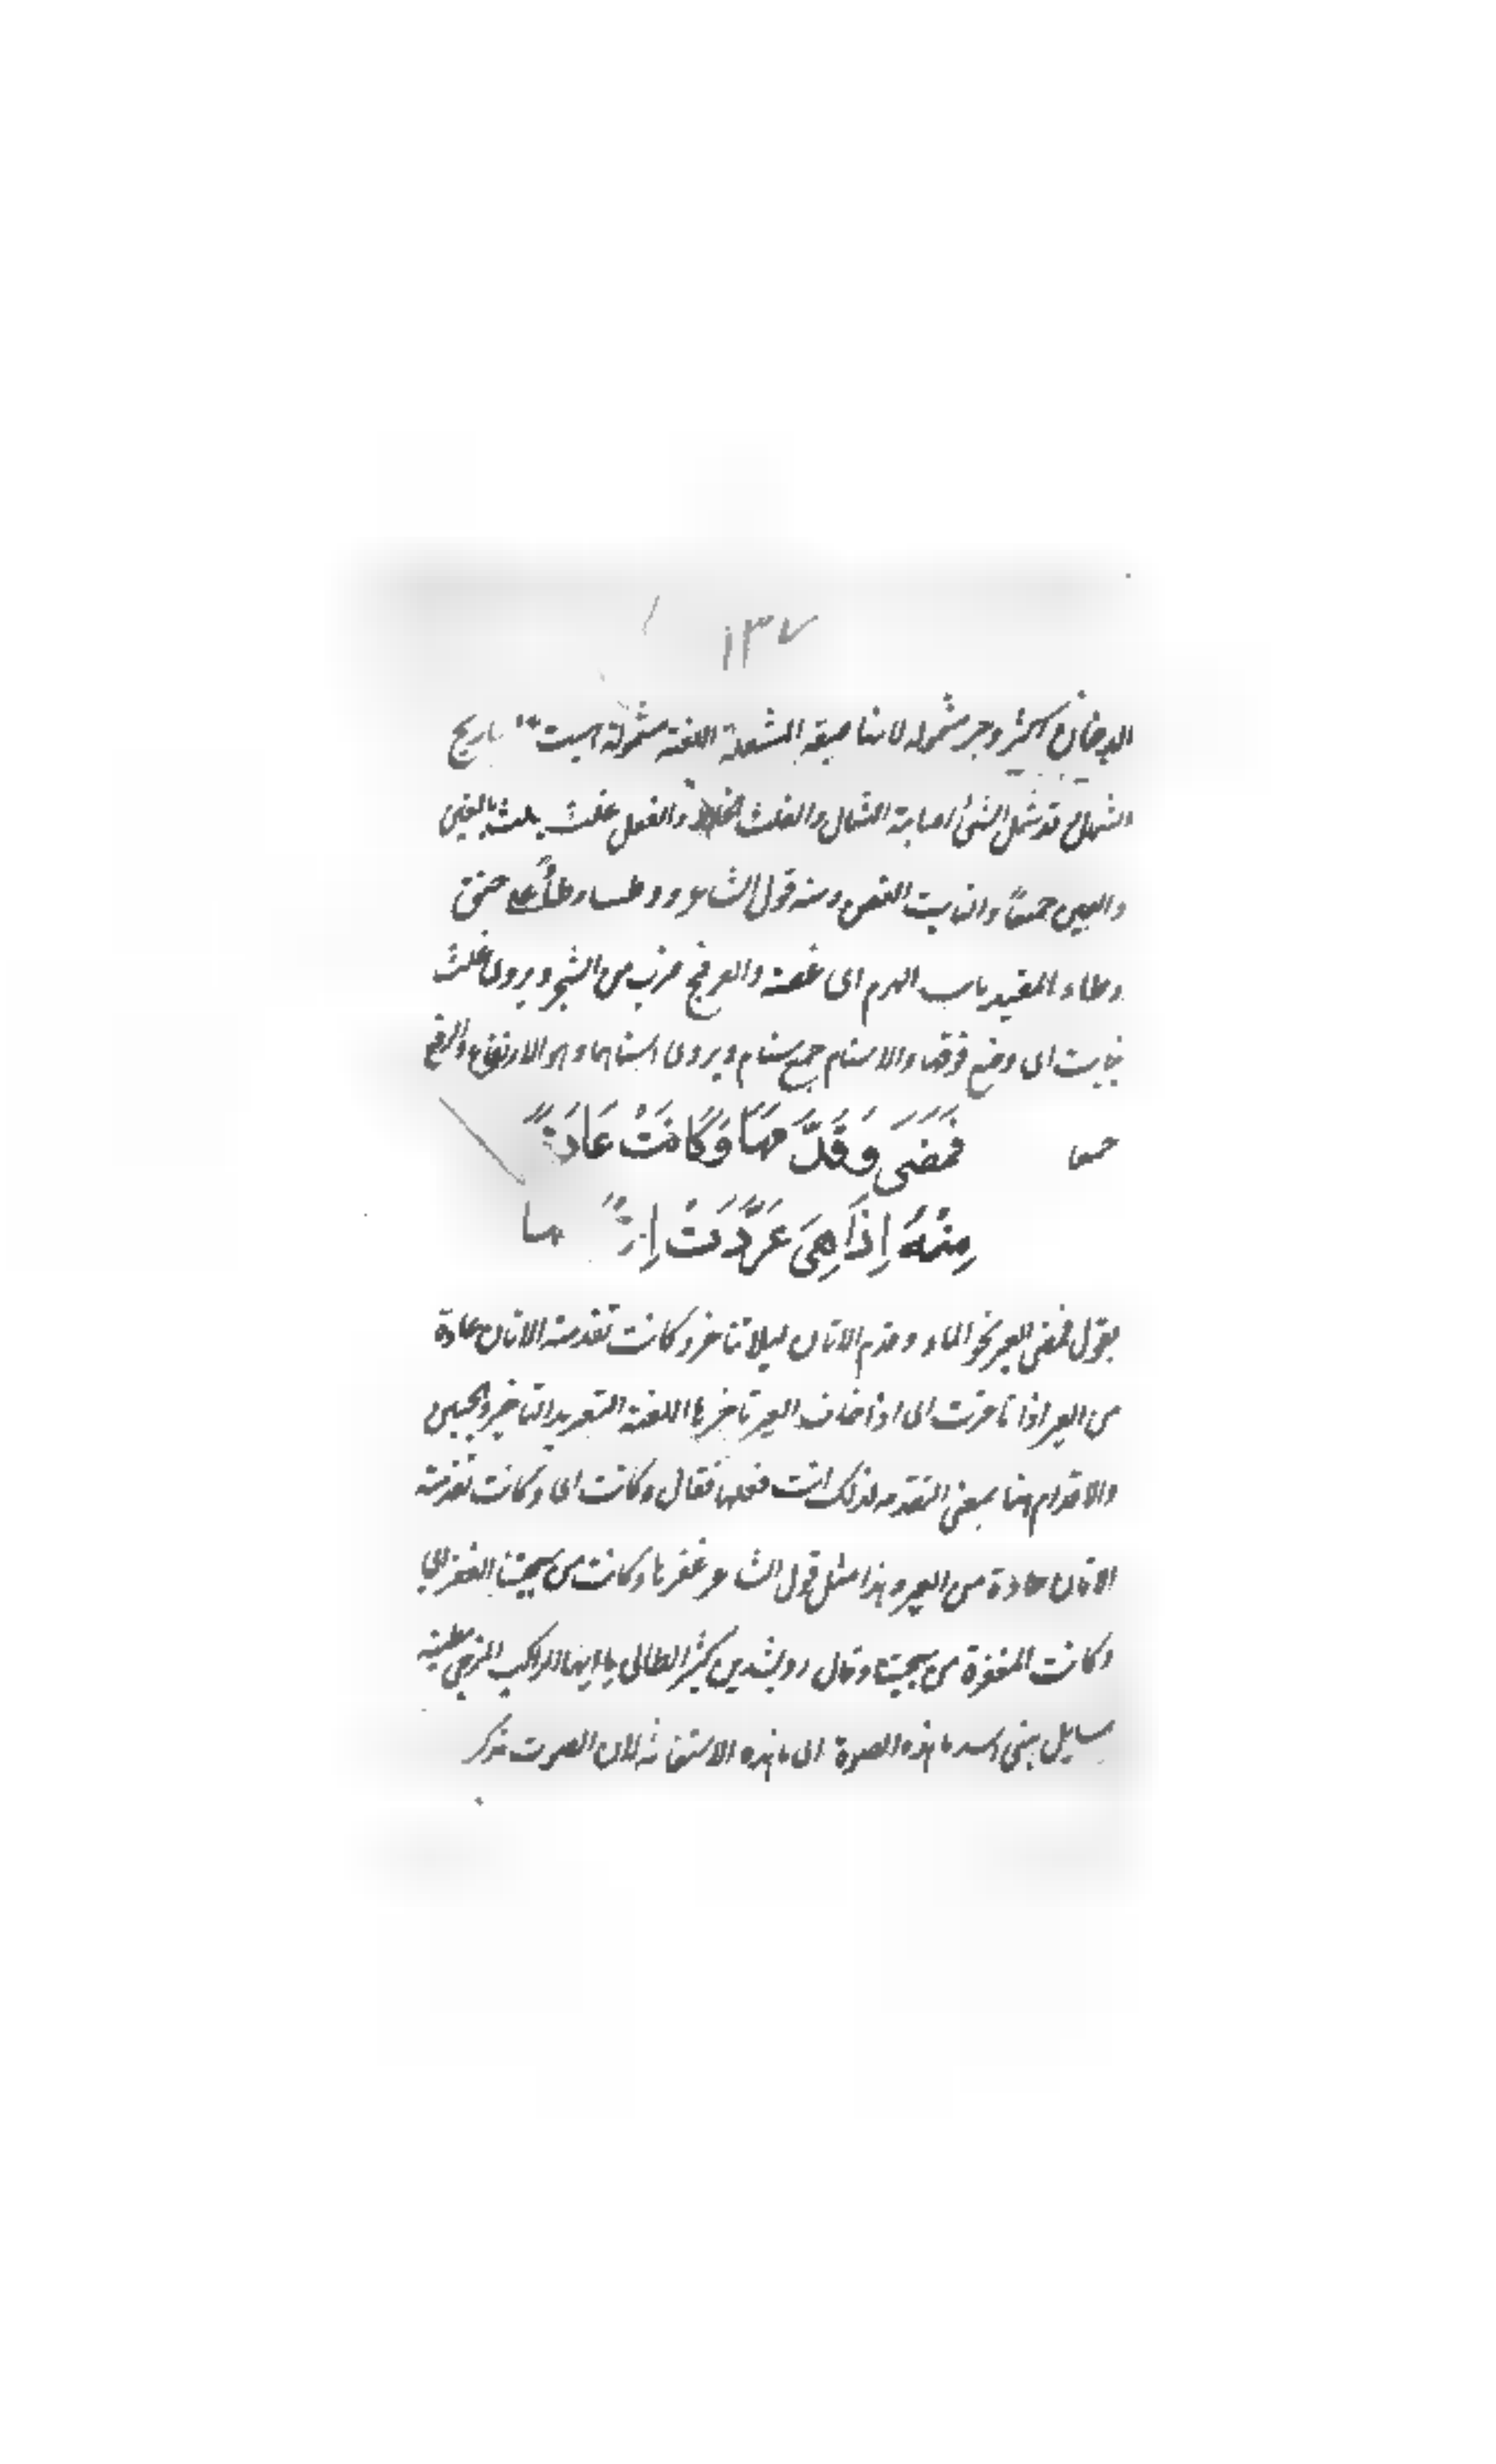 ١٣٧
الدخان كثير وجر مشمولة لانها صفة المشعلة اللغة مشمولة اصيبت بريح
الشمال قد شمل الشئ اصابة الشمال والغلث الخلط والفعل غلث يغلث بالغين
والعين جمعا والنابت الغض ومنه قول الشاعر ووطئنا وطأ على حنق
وطاء المقيد يابس الهرم اى غضة والعرفج ضرب من الشجر ويروى غلثت
بنابت اى وضع فوقها والاسنام جمع سنام ويروى اسنامها وهو الارتفاع والرفع
جمعا
فَمَضَى وَقَدَّمَهَا وَكَانَتْ عَادَةً
مِنْهُ اِذَا هِيَ عَرَّدَتْ اِ
يقول فمضى العير نحو الماء وقدم الاتان ليلا تتاخر وكانت تقدمة الاتان عادة
من العير اذا تاخرت اى اذا خاف العير تاخرها اللغة التعريد التاخر والجبن
والاقدام هنا بمعنى التقدمه لذلك انث فعلها فقال وكانت اى وكانت تقدمة
الاتان عادة من العير وهذا مثل قول الشاعر غفرنا وكانت من سجيتنا الغفر اى
وكانت المغفرة من سجيتنا وقال رويشد بن كثير الطائى يا ايها الراكب المزجى مطيته
سايل بنى اسد ما هذه الصوت اى ما هذه الاستغاثة لان الصوت مذكر